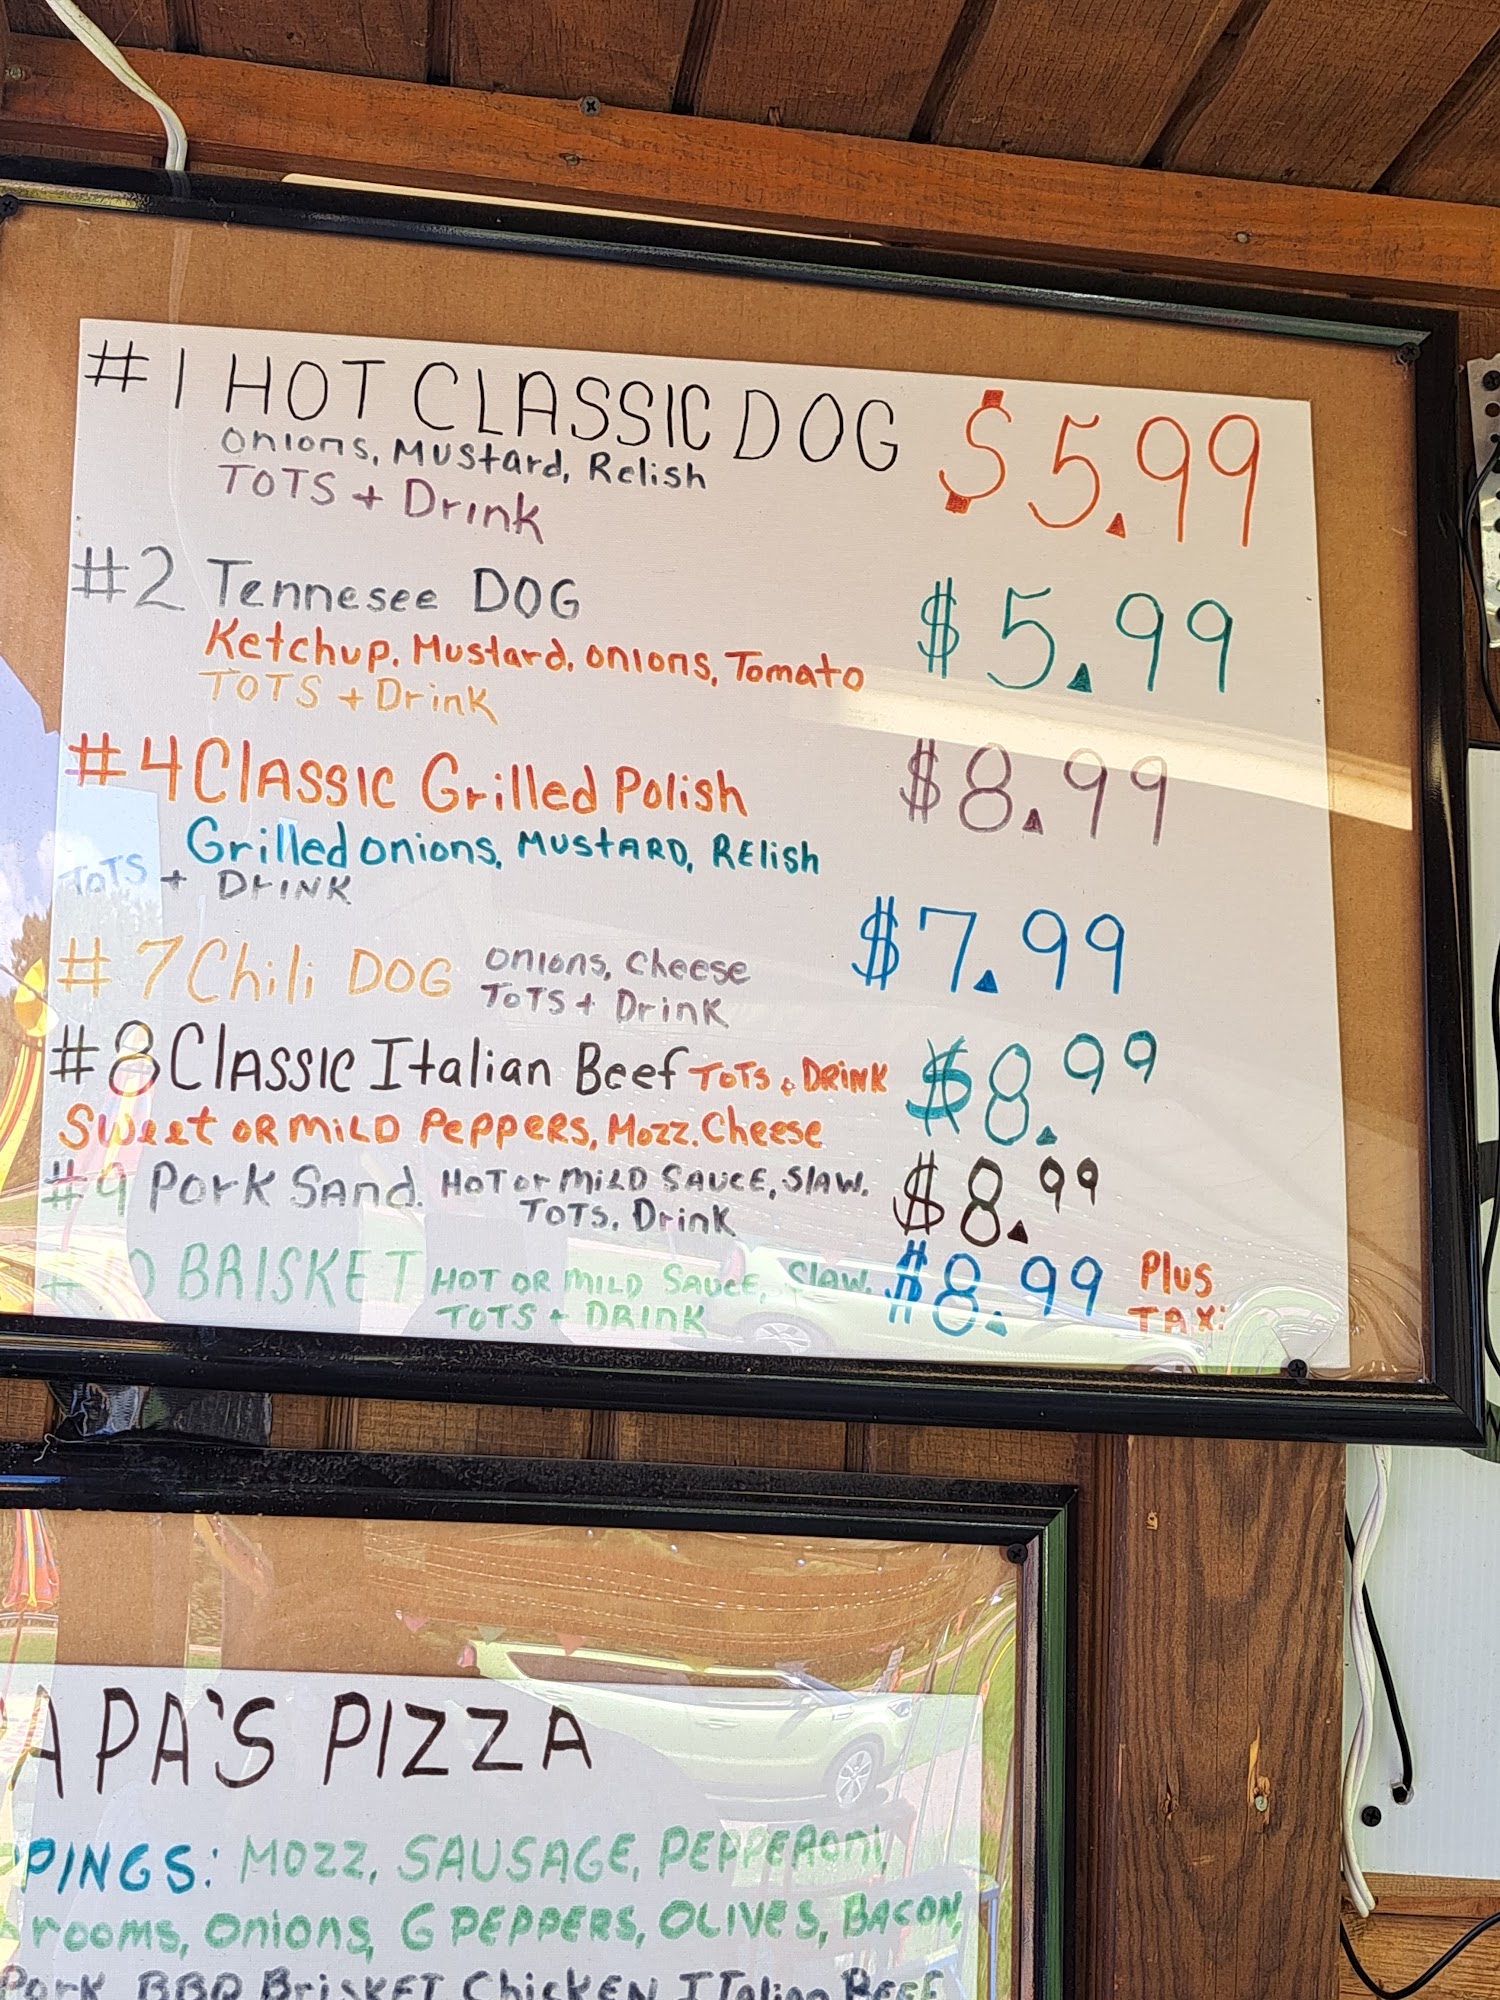 #1 HOT CLASSIC DOG $5.99
Onions, Mustard, Relish
TOTS + Drink
#2 Tennesee DOG $5.99
Ketchup, Mustard, onions, Tomato
TOTS + Drink
#4 Classic Grilled Polish $8.99
Grilled onions, MUSTARD, RElish
TOTS + DrINK
#7 Chili DOG onions, cheese $7.99
TOTS + Drink
#8 Classic Italian Beef TOTS & DRINK $8.99
Sweet OR MILD PEPPERS, Mozz. Cheese
#9 Pork Sand. HOT or MILD SAUCE, Slaw, $8.99
TOTS, Drink
BRISKET HOT OR MILD SAUCE, Slaw, $8.99 Plus
TOTS + DRINK TAX:
APA'S PIZZA
PPINGS: MOZZ, SAUSAGE, PEPPERoni,
rooms, onions, G PEPPERS, OLIVES, BACON,
Pork BBQ BrisKET ChicKEN ITalian BEEF